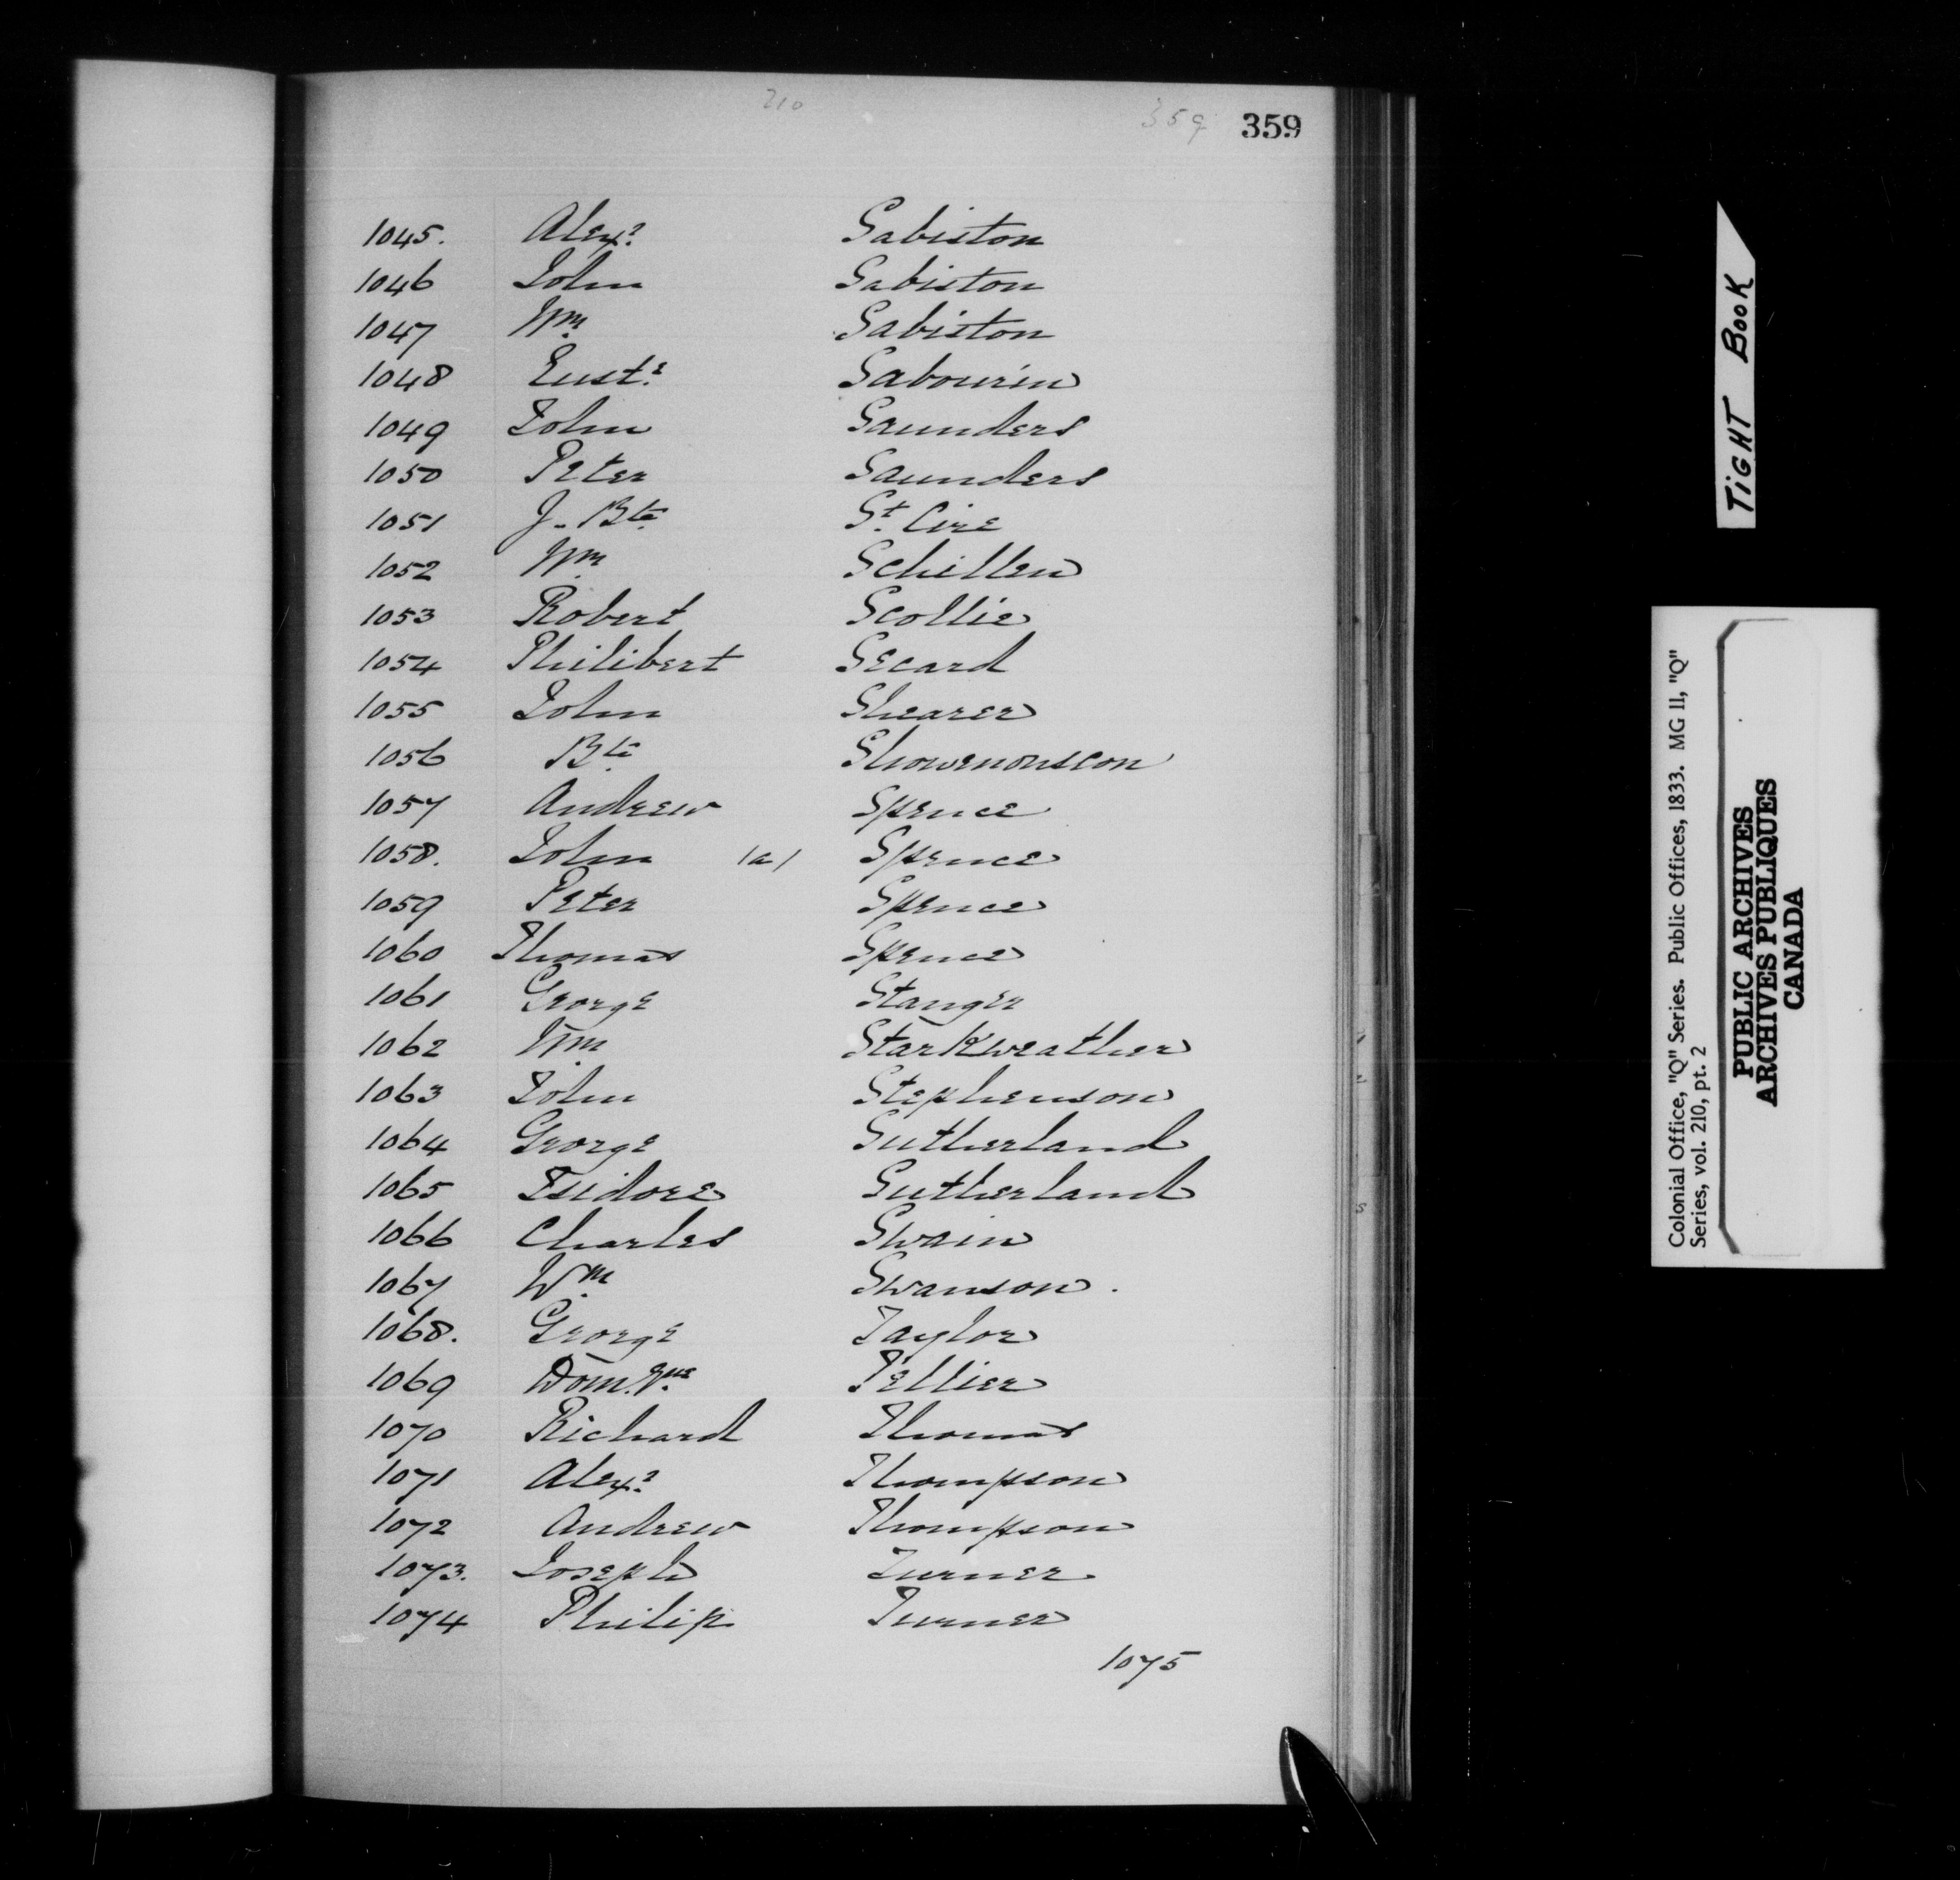 210
359 359
1045. Alexr. Sabiston
1046 John Sabiston
1047 Wm. Sabiston
1048 Euste. Sabourin
1049 John Saunders
1050 Peter Saunders
1051 J. Bte. St. Cire
1052 Wm. Schillen
1053 Robert Scollie
1054 Philibert Secard
1055 John Shearer
1056 Bte. Showenonscon
1057 Andrew Spence
1058. John (a) Spence
1059 Peter Spence
1060 Thomas Spence
1061 George Stanger
1062 Wm. Starkweather
1063 John Stephenson
1064 George Sutherland
1065 Isidore Sutherland
1066 Charles Swain
1067 Wm. Swanson.
1068. George Taylor
1069 Domque. Tellier
1070 Richard Thomas
1071 Alexr. Thompson
1072 Andrew Thompson
1073. Joseph Turner
1074 Philip Turner
1075
TIGHT BOOK
Colonial Office, "Q" Series. Public Offices, 1833. MG 11, "Q"
Series, vol. 210, pt. 2
PUBLIC ARCHIVES
ARCHIVES PUBLIQUES
CANADA